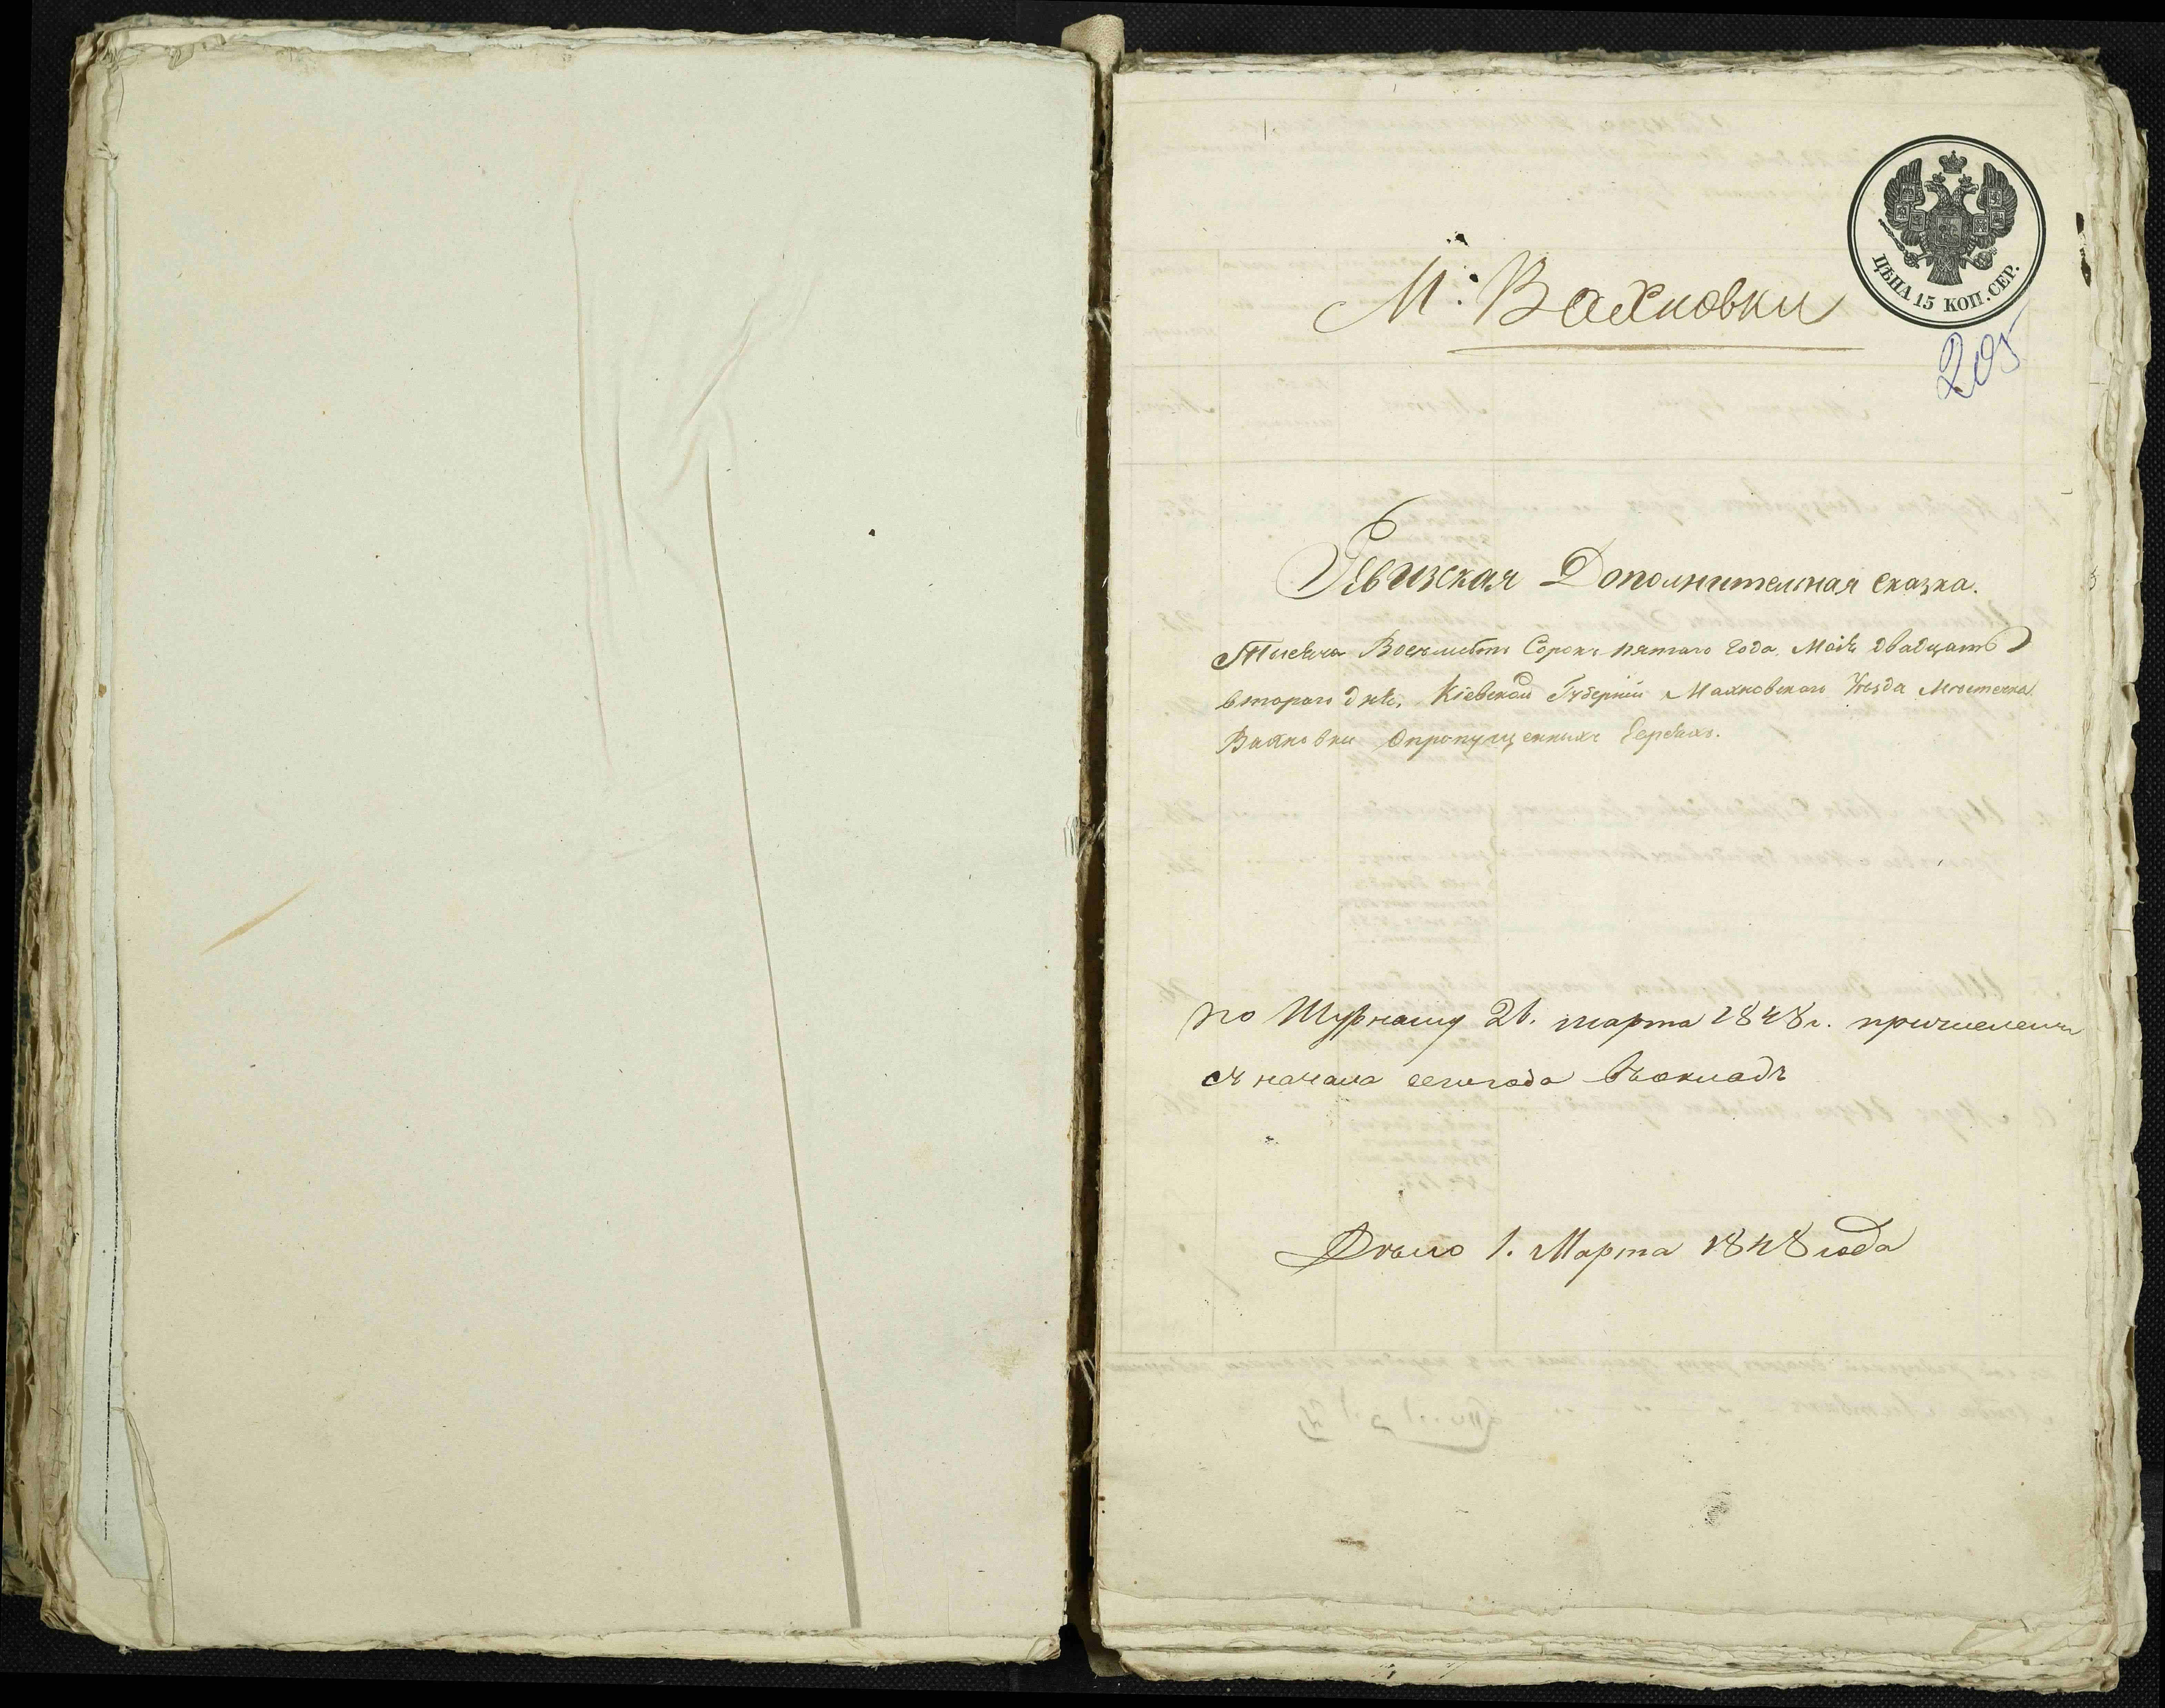 М: Вахновки
ЦѢНА 15 КОП. СЕР.
205
Ревизская Дополнительная сказка.
Тысяча Восемьсотъ Сорокъ пятаго года, Маія двадцать
втораго дня, Кіевской Губерніи Махновскаго Уѣзда Мѣстечка
Вахновки Опропущенныхъ Евреяхъ.
по Журналу 26. марта 1848 г. причислены
съ начала сего года въокладъ
Дѣло 1. Марта 1848 года